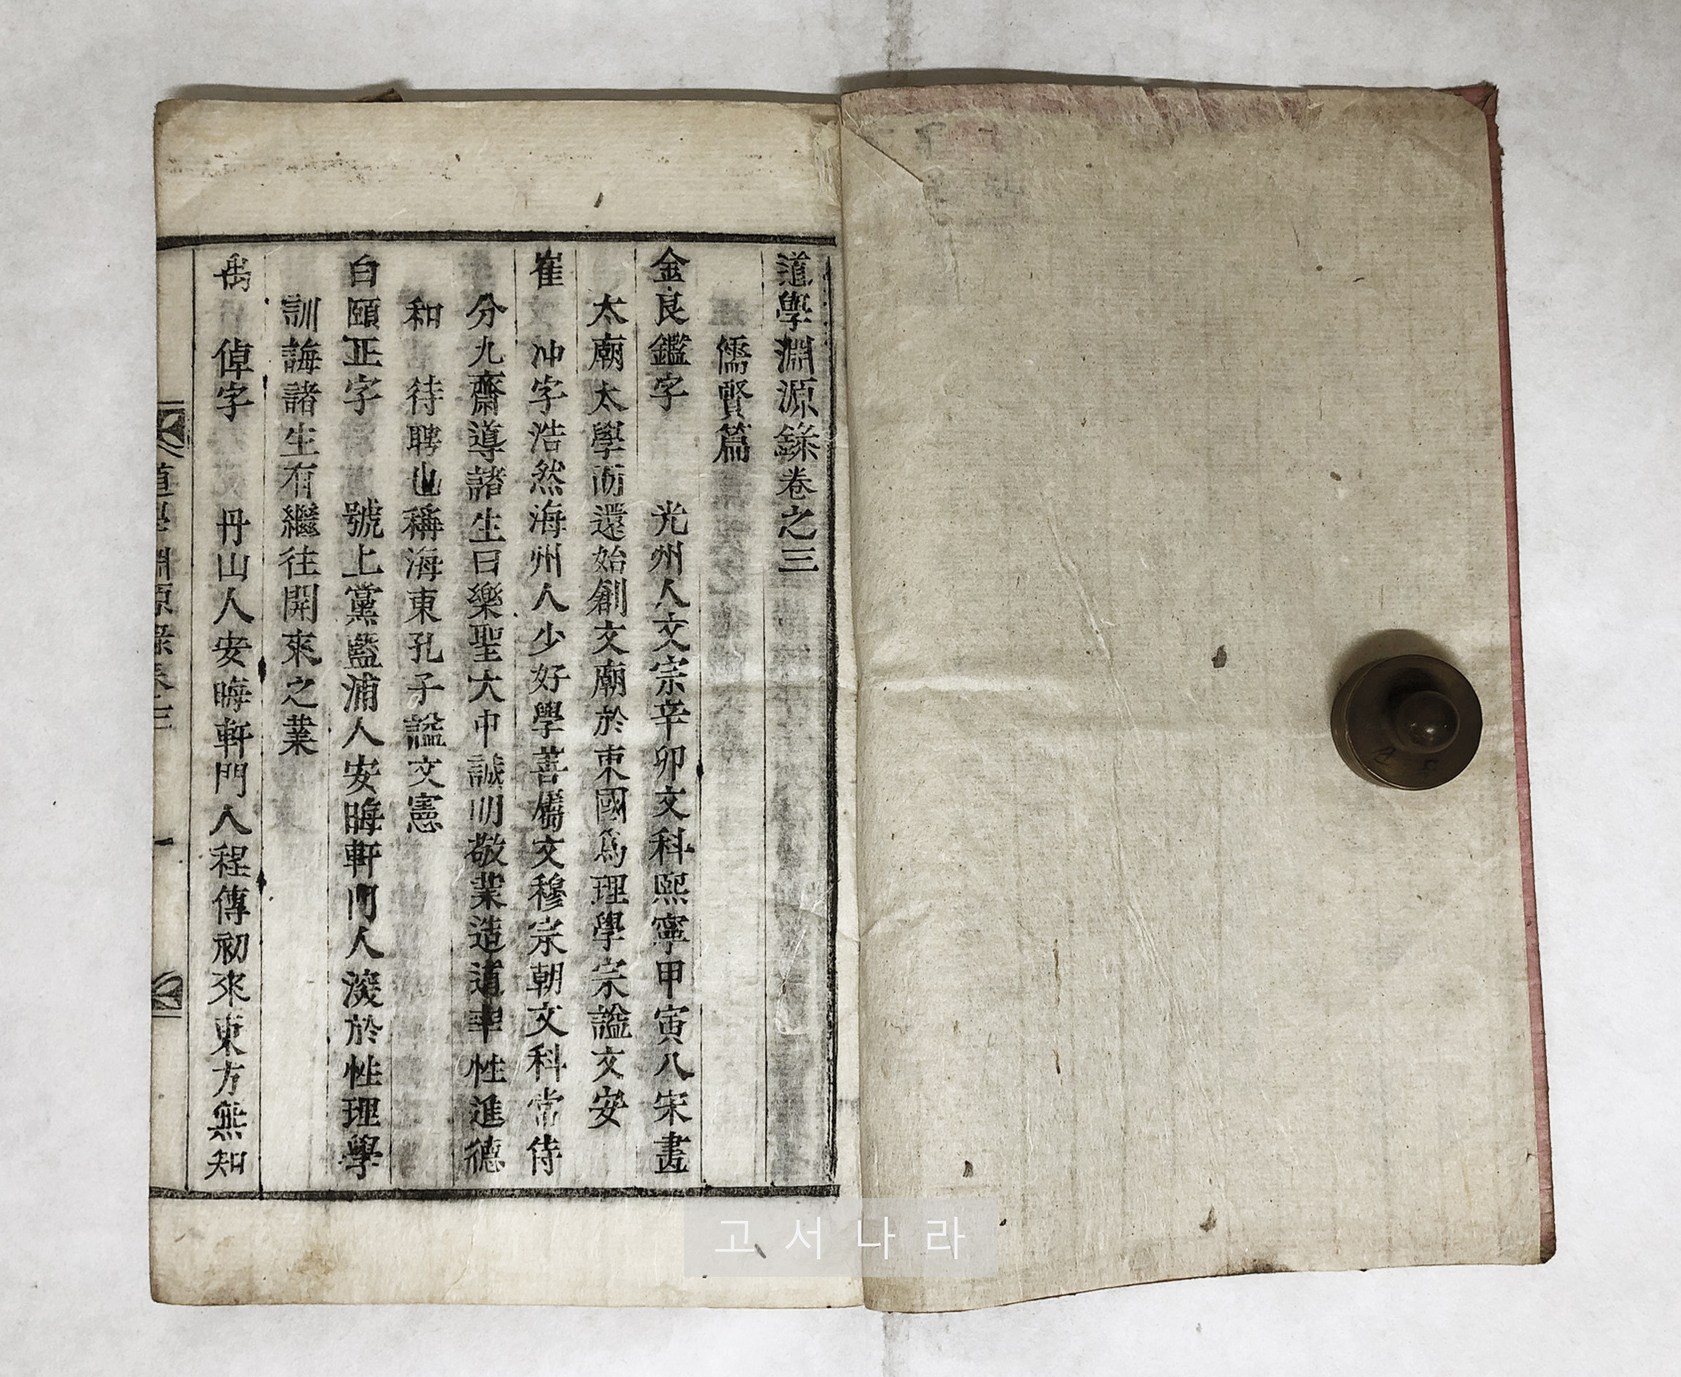 道學淵源錄卷之三
儒賢篇
金良鑑字 光州人文宗辛卯文科熙寧甲寅入宋畫
太廟太學而還始創文廟於東國爲理學宗謚文安
崔 冲字浩然海州人少好學善屬文穆宗朝文科常侍
分九齋導諸生曰樂聖大中誠明敬業造道率性進德
和 待聘也稱海東孔子謚文憲
白頤正字 號上黨藍浦人安晦軒門人深於性理學
訓誨諸生有繼往開來之業
禹 倬字 丹山人安晦軒門人程傳初來東方無知
道學淵源錄卷三 一
고서나라